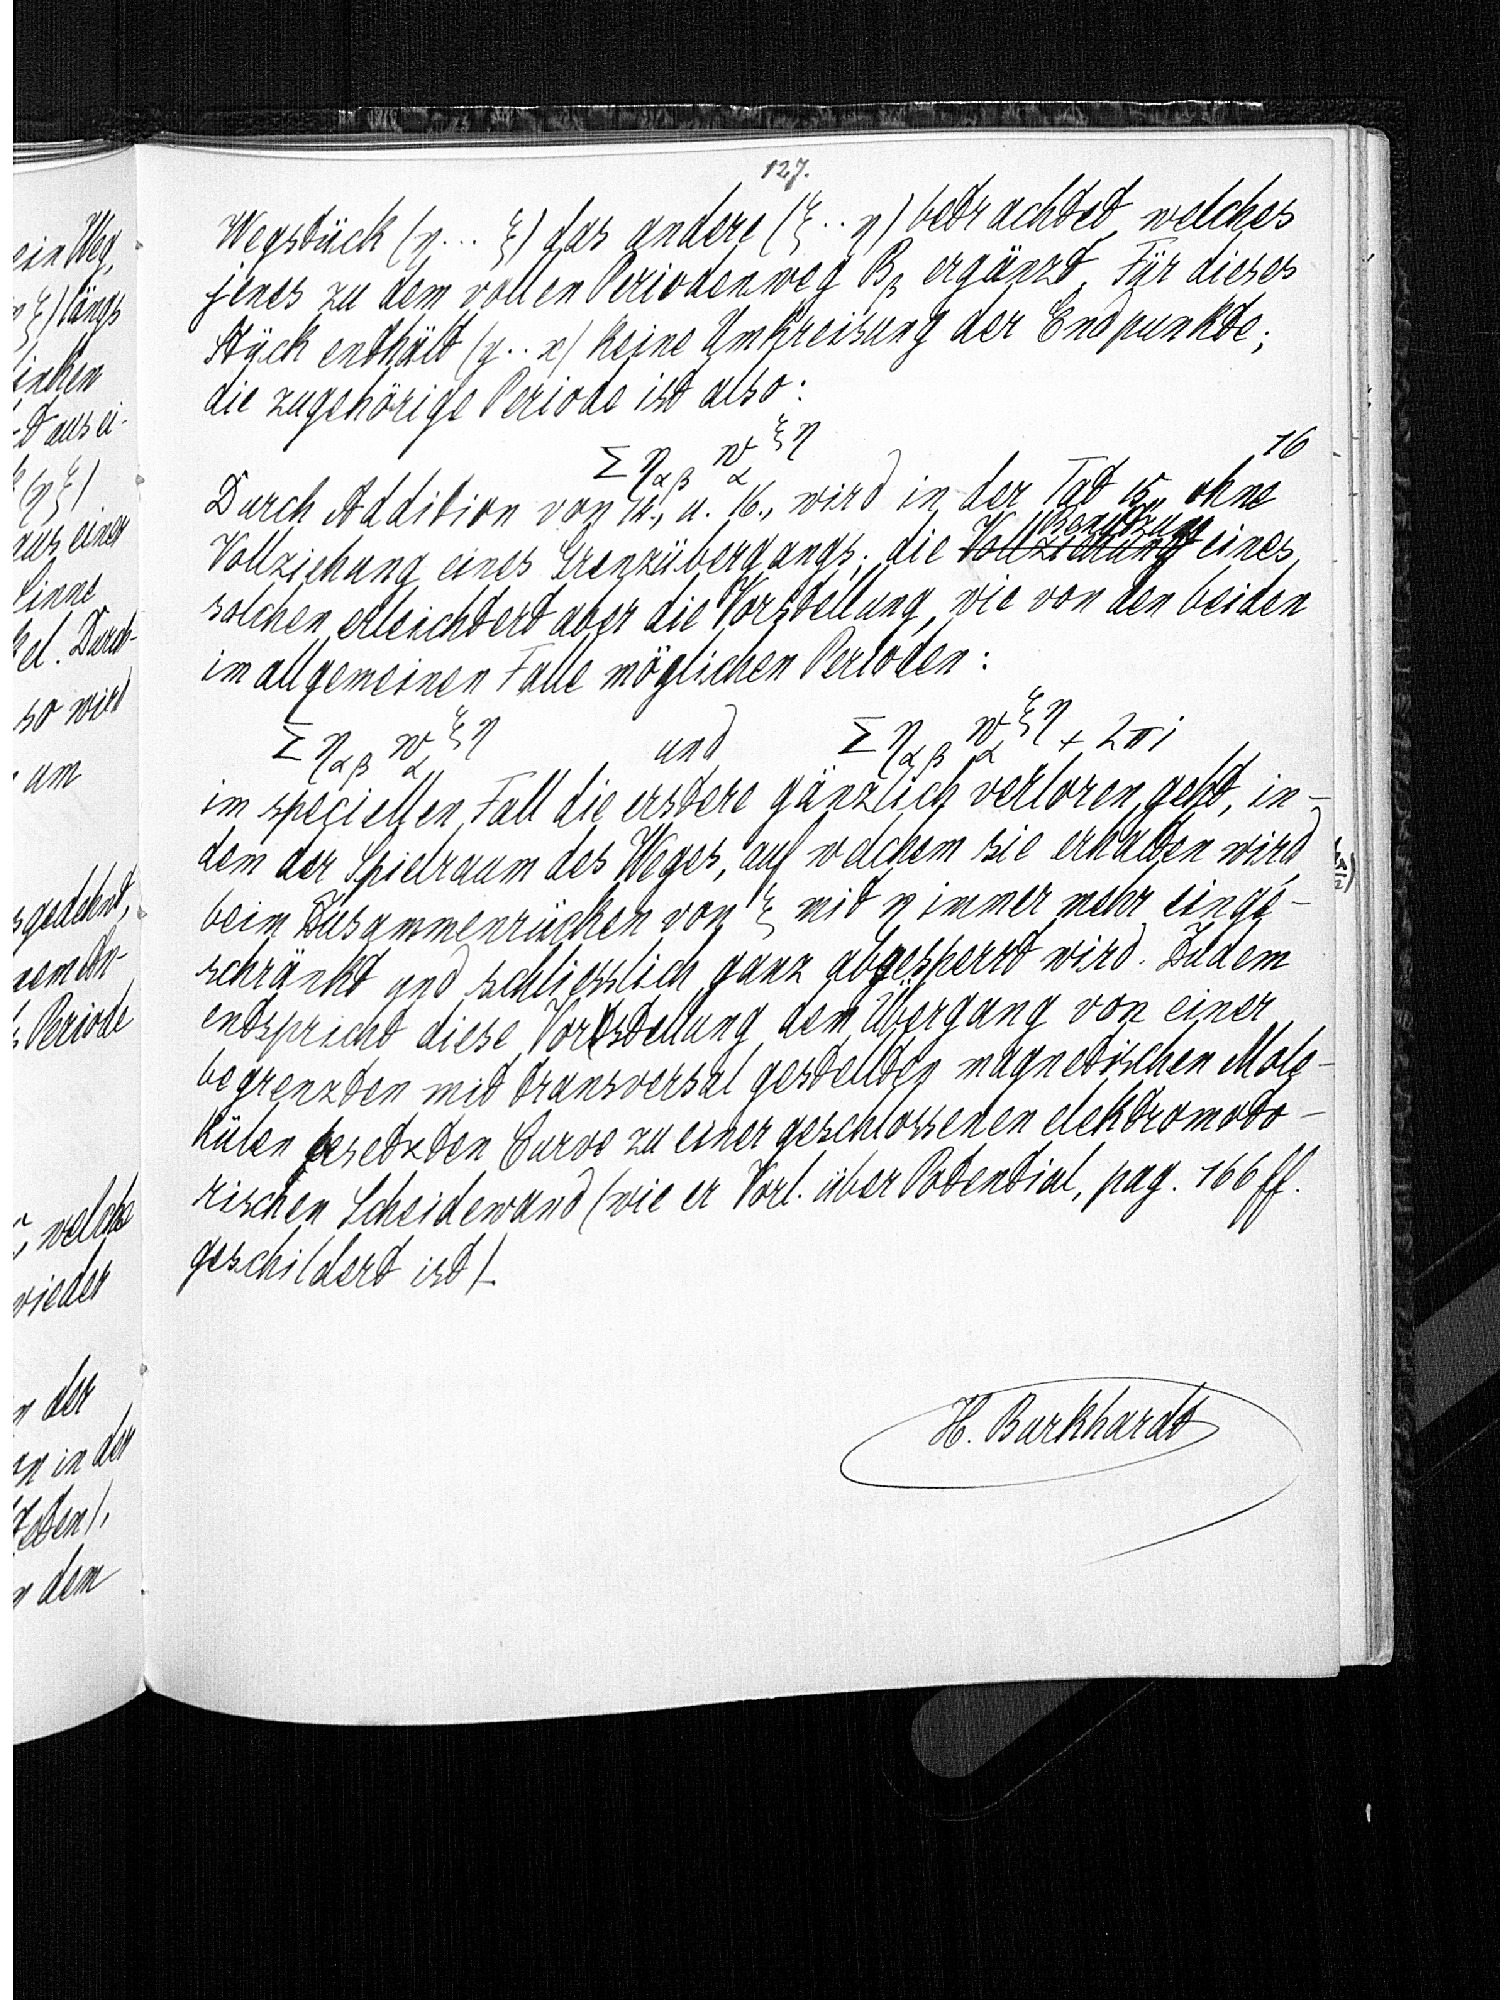 127.
Wegstück (η... ξ) das andere (ξ .. η) betrachtet, welches
jenes zu dem vollen Periodenweg B_β ergänzt. Für dieses
Stück enthält (y .. x) keine Umkreisung der Endpunkte;
die zugehörige Periode ist also:
Σ η_αβ w_α^ξη 16
Durch Addition von 14., u. 16., wird in der Tat 15., ohne
Vollziehung eines Grenzübergangs; die Vollziehung Benutzung eines
solchen erleichtert aber die Vorstellung, wie von den beiden
im allgemeinen Falle möglichen Perioden:
Σ η_αβ w_α^ξη und Σ η_αβ w_α^ξη + 2πi
im speciellen Fall die erstere gänzlich verloren geht, in-
dem der Spielraum des Weges, auf welchem sie erhalten wird,
beim Zusammenrücken von ξ mit η immer mehr einge-
schränkt und schliesslich ganz abgesperrt wird. Zudem
entspricht diese Vorstellung dem Übergang von einer
begrenzten mit transversal gestellten magnetischen Mole-
külen besetzten Curve zu einer geschlossenen elektromoto-
rischen Scheidewand (wie er Vorl. über Potential, pag. 166 ff.
geschildert ist).
H. Burkhardt
ein Weg,
längs
aus ei-
(η ξ)
aus einer
Sinne
so wird
um
Periode
welche
wieder
der
in der
dem